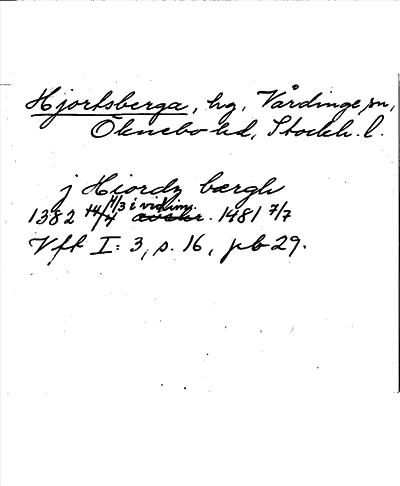 Hjortsberga, hg, Vårdinge sn,
Öknebo hd, Stockh. l.
j Hiordz bærgh
1382 11/3 i vidim. 1481 7/7
Vft I: 3, s. 16, pb 29.